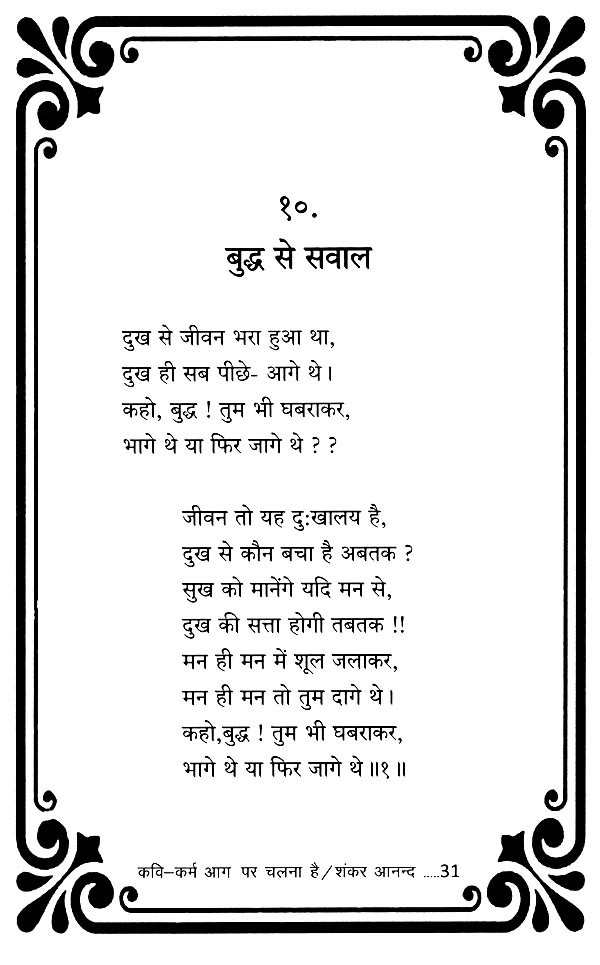 १०.
बुद्ध से सवाल
दुख से जीवन भरा हुआ था,
दुख ही सब पीछे- आगे थे।
कहो, बुद्ध ! तुम भी घबराकर,
भागे थे या फिर जागे थे ? ?
जीवन तो यह दु:खालय है,
दुख से कौन बचा है अबतक ?
सुख को मानेंगे यदि मन से,
दुख की सत्ता होगी तबतक !!
मन ही मन में शूल जलाकर,
मन ही मन तो तुम दागे थे।
कहो,बुद्ध ! तुम भी घबराकर,
भागे थे या फिर जागे थे॥१॥
कवि–कर्म आग पर चलना है/शंकर आनन्द .....31